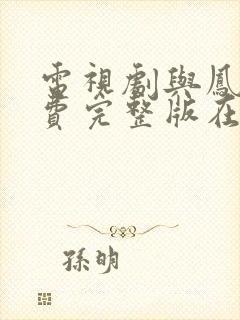 電視劇與鳳
費完整版在
孫明